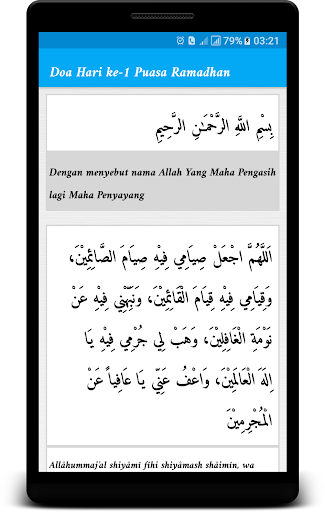 79% 03:21
Doa Hari ke-1 Puasa Ramadhan
بِسْمِ اللَّهِ الرَّحْمَٰنِ الرَّحِيمِ
Dengan menyebut nama Allah Yang Maha Pengasih
lagi Maha Penyayang
اَللَّهُمَّ اجْعَلْ صِيَامِي فِيْهِ صِيَامَ الصَّائِمِيْنَ،
وَقِيَامِي فِيْهِ قِيَامَ الْقَائِمِيْنَ، وَنَبِّهْنِي فِيْهِ عَنْ
نَوْمَةِ الْغَافِلِيْنَ، وَهَبْ لِي جُرْمِي فِيْهِ يَا
اِلَهَ الْعَالَمِيْنَ، وَاعْفُ عَنِّي يَا عَافِياً عَنْ
الْمُجْرِمِيْنَ
Allâhummaj'al shiyâmî fîhi shiyâmash shâimîn, wa